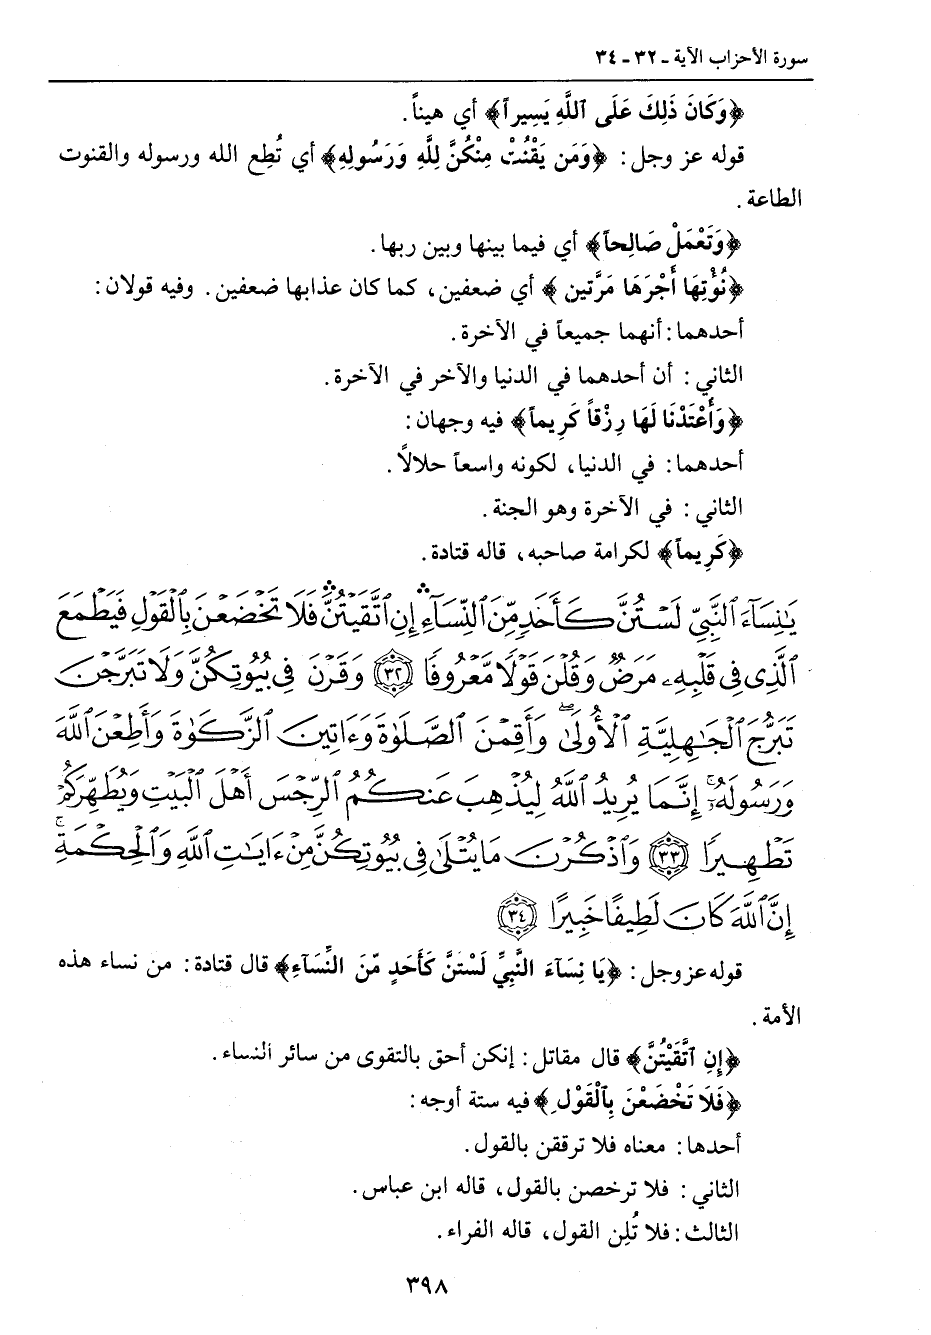 سورة الأحزاب الآية ـ ٣٢ ـ ٣٤
﴿وَكَانَ ذَلِكَ عَلَى ٱللَّهِ يَسِيراً﴾ أي هيناً.
قوله عز وجل: ﴿وَمَن يَقْنُتْ مِنْكُنَّ لِلَّهِ وَرَسُولِهِ﴾ أي تُطِع الله ورسوله والقنوت
الطاعة.
﴿وَتَعْمَلْ صَالِحاً﴾ أي فيما بينها وبين ربها.
﴿نُؤْتِهَا أَجْرَهَا مَرَّتين﴾ أي ضعفين، كما كان عذابها ضعفين. وفيه قولان:
أحدهما: أنهما جميعاً في الآخرة.
الثاني: أن أحدهما في الدنيا والآخر في الآخرة.
﴿وَأَعْتَدْنَا لَهَا رِزْقاً كَرِيماً﴾ فيه وجهان:
أحدهما: في الدنيا، لكونه واسعاً حلالاً.
الثاني: في الآخرة وهو الجنة.
﴿كَرِيماً﴾ لكرامة صاحبه، قاله قتادة.
يَٰنِسَآءَ ٱلنَّبِىِّ لَسْتُنَّ كَأَحَدٍ مِّنَ ٱلنِّسَآءِ ۛ إِنِ ٱتَّقَيْتُنَّ ۛ فَلَا تَخْضَعْنَ بِٱلْقَوْلِ فَيَطْمَعَ
ٱلَّذِى فِى قَلْبِهِۦ مَرَضٌ وَقُلْنَ قَوْلًا مَّعْرُوفًا ٣٢ وَقَرْنَ فِى بُيُوتِكُنَّ وَلَا تَبَرَّجْنَ
تَبَرُّجَ ٱلْجَٰهِلِيَّةِ ٱلْأُولَىٰ ۖ وَأَقِمْنَ ٱلصَّلَوٰةَ وَءَاتِينَ ٱلزَّكَوٰةَ وَأَطِعْنَ ٱللَّهَ
وَرَسُولَهُۥٓ ۚ إِنَّمَا يُرِيدُ ٱللَّهُ لِيُذْهِبَ عَنكُمُ ٱلرِّجْسَ أَهْلَ ٱلْبَيْتِ وَيُطَهِّرَكُمْ
تَطْهِيرًا ٣٣ وَٱذْكُرْنَ مَا يُتْلَىٰ فِى بُيُوتِكُنَّ مِنْ ءَايَٰتِ ٱللَّهِ وَٱلْحِكْمَةِ ۚ
إِنَّ ٱللَّهَ كَانَ لَطِيفًا خَبِيرًا ٣٤
قوله عز وجل: ﴿يَا نِسَآءَ النَّبِيِّ لَسْتُنَّ كَأَحَدٍ مّنَ النِّسَآءِ﴾ قال قتادة: من نساء هذه
الأمة.
﴿إِنِ ٱتَّقَيْتُنَّ﴾ قال مقاتل: إنكن أحق بالتقوى من سائر النساء.
﴿فَلَا تَخْضَعْنَ بِٱلْقَوْلِ﴾ فيه ستة أوجه:
أحدها: معناه فلا ترققن بالقول.
الثاني: فلا ترخصن بالقول، قاله ابن عباس.
الثالث: فلا تُلِن القول، قاله الفراء.
٣٩٨